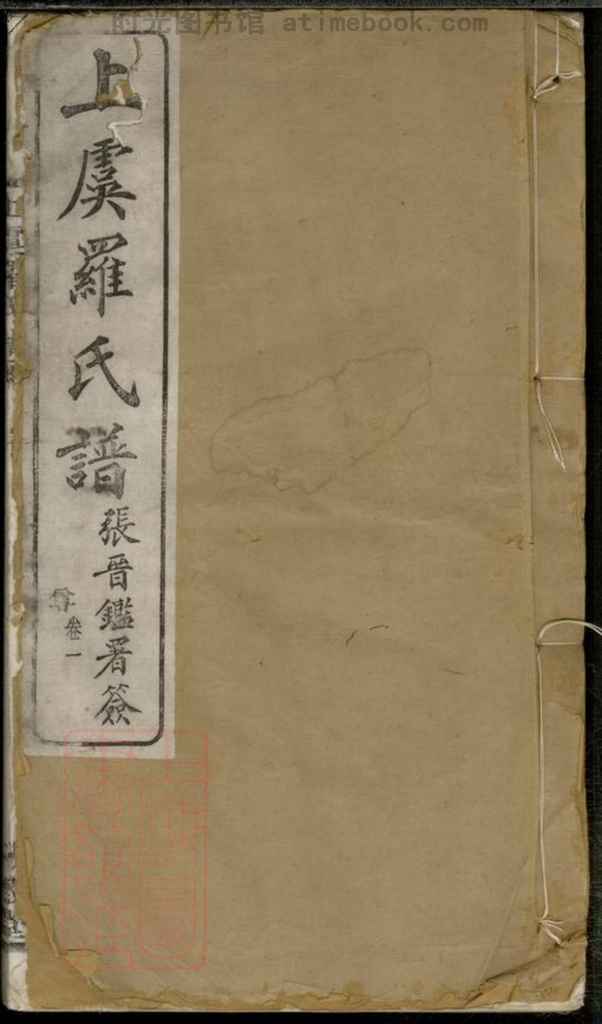 时光图书馆 atimebook.com
上虞羅氏譜
張晉鑑署簽
卷一